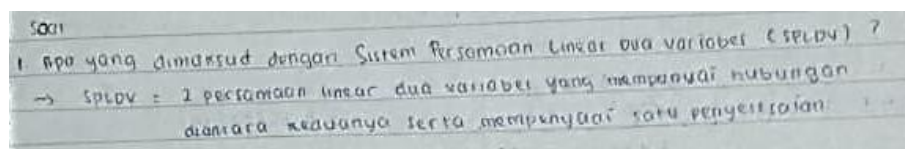 Soal
1 Apa yang dimaksud dengan Sistem Persamaan Linear Dua Variabel (SPLDV) ?
→ SPLDV = 2 persamaan linear dua variabel yang mempunyai hubungan
diantara keduanya serta mempunyai satu penyelesaian